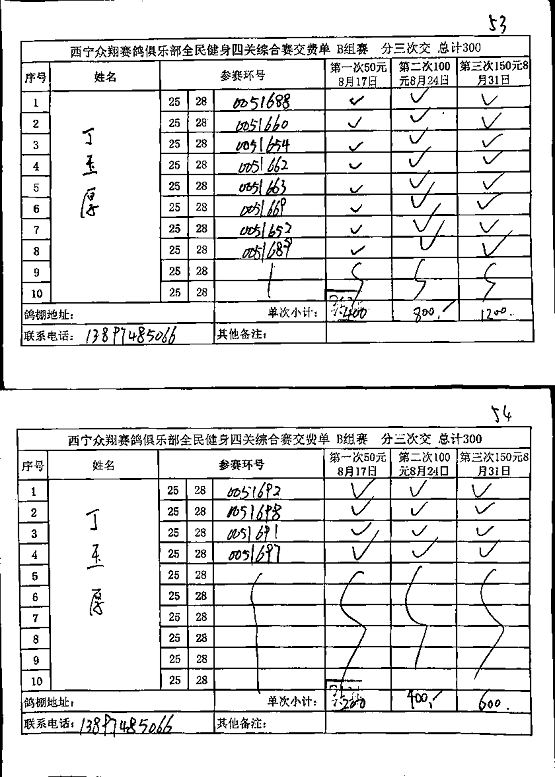 53
西宁众翔赛鸽俱乐部全民健身四关综合赛交费单 B组赛 分三次交 总计300
序号 姓名 参赛环号 第一次50元8月17日 第二次100元8月24日 第三次150元8月31日
丁玉厚
1 25 28 0051688 ✓ ✓ ✓
2 25 28 0051660 ✓ ✓ ✓
3 25 28 0051654 ✓ ✓ ✓
4 25 28 0051662 ✓ ✓ ✓
5 25 28 0051663 ✓ ✓ ✓
6 25 28 0051669 ✓ ✓ ✓
7 25 28 0051652 ✓ ✓ ✓
8 25 28 0051689 ✓ ✓ ✓
9 25 28
10 25 28
鸽棚地址: 单次小计: 400 800 1200
联系电话: 13897485066 其他备注:
54
西宁众翔赛鸽俱乐部全民健身四关综合赛交费单 B组赛 分三次交 总计300
序号 姓名 参赛环号 第一次50元8月17日 第二次100元8月24日 第三次150元8月31日
丁玉厚
1 25 28 0051692 ✓ ✓ ✓
2 25 28 0051698 ✓ ✓ ✓
3 25 28 0051691 ✓ ✓ ✓
4 25 28 0051697 ✓ ✓ ✓
5 25 28
6 25 28
7 25 28
8 25 28
9 25 28
10 25 28
鸽棚地址: 单次小计: 200 400 600
联系电话: 13897485066 其他备注: